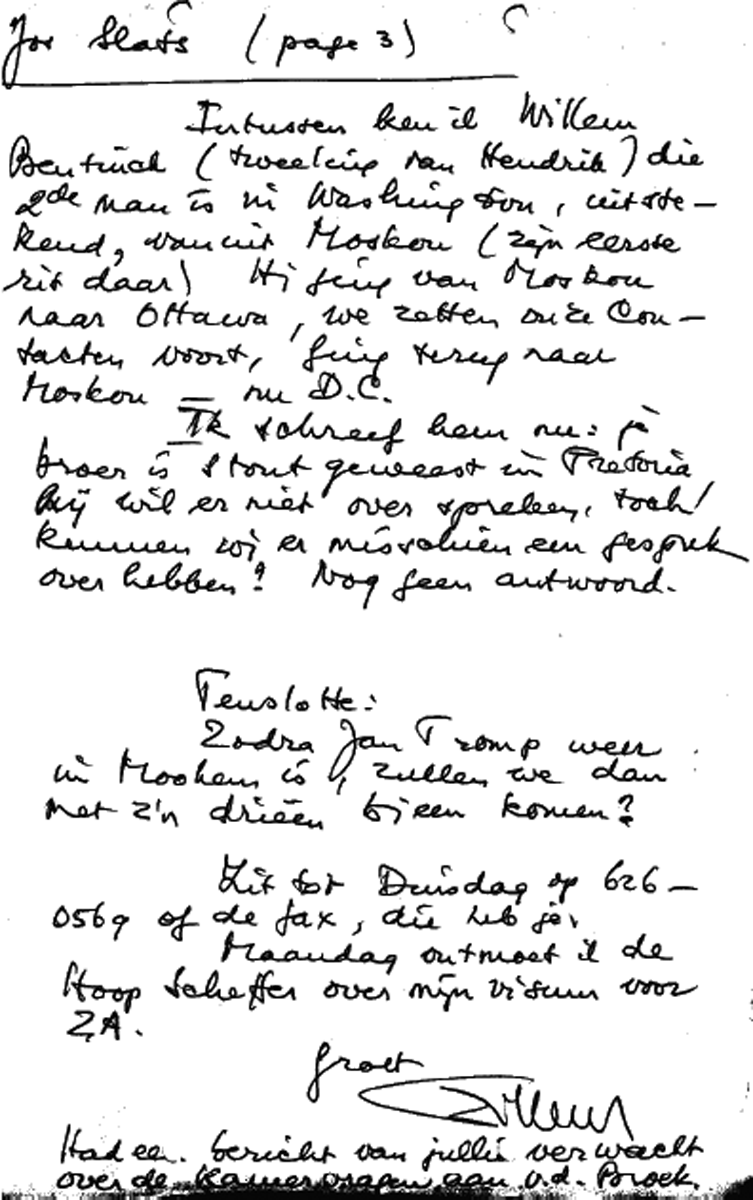 Jos Slats (page 3)
Intussen ken ik Willem
Bentinck (tweeling van Hendrik) die
2de man is in Washington, uitste-
kend, vanuit Moskou (zijn eerste
rit daar) Hij ging van Moskou
naar Ottawa, we zetten onze Con-
tacten voort, ging terug naar
Moskou — nu D.C.
Ik schreef hem nu: je
broer is stout geweest in Pretoria
hij wil er niet over spreken, toch!
kunnen wij er misschien een gesprek
over hebben? Nog geen antwoord.
Tenslotte:
Zodra Jan Tromp weer
in Mookem is, zullen we dan
met z'n drieën bijeen komen?
Zit tot Dinsdag op 626-
0569 of de fax, die heb je.
Maandag ontmoet ik de
Hoop Scheffer over mijn visum voor
ZA.
Groet
Willem
Had een bericht van jullie verwacht
over de Kamervragen aan v.d. Broek.